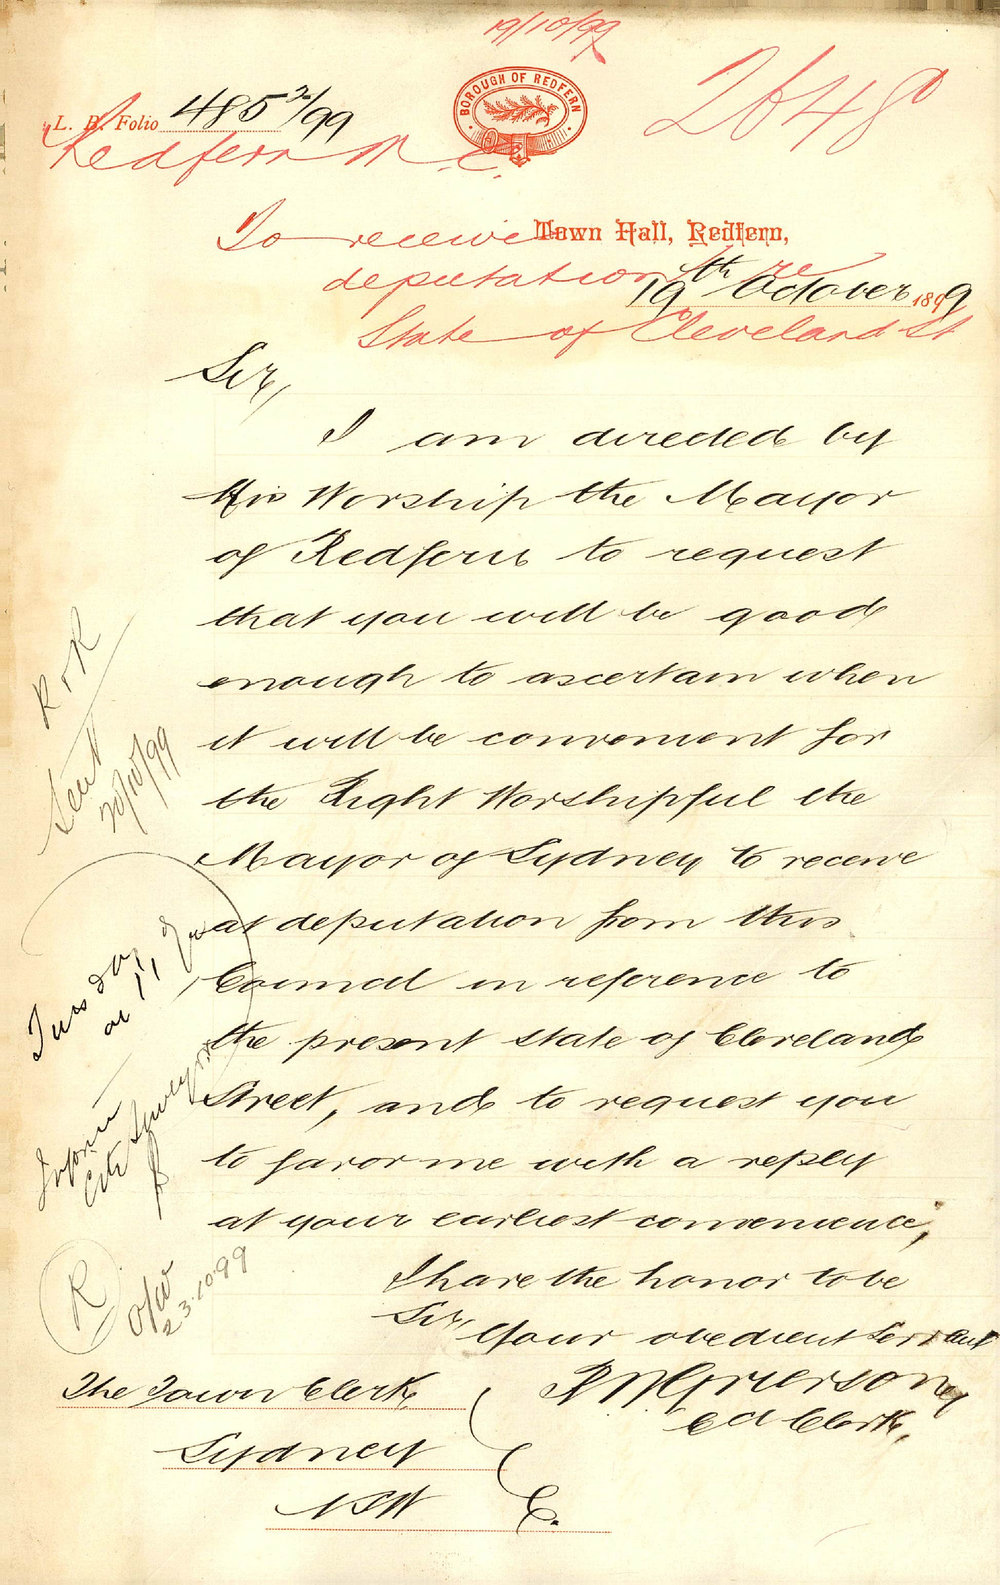 19/10/99
L. B. Folio 485 2/99
BOROUGH OF REDFERN
2648
Redfern M. C.
To receive
Town Hall, Redfern,
deputation re
19th October 1899
State of Cleveland St
Sir,
I am directed by
His Worship the Mayor
of Redfern to request
that you will be good
enough to ascertain when
it will be convenient for
the Right Worshipful the
Mayor of Sydney to receive
at deputation from this
Council in reference to
the present state of Cleveland
Street, and to request you
to favor me with a reply
at your earliest convenience,
I have the honor to be
Sir,
Your obedient Servant
Grierson
Clerk,
The Town Clerk
Sydney
NSW
Sent
20/10/99
Tuesday
at 11
Inform
City Surveyor
R
23.10.99